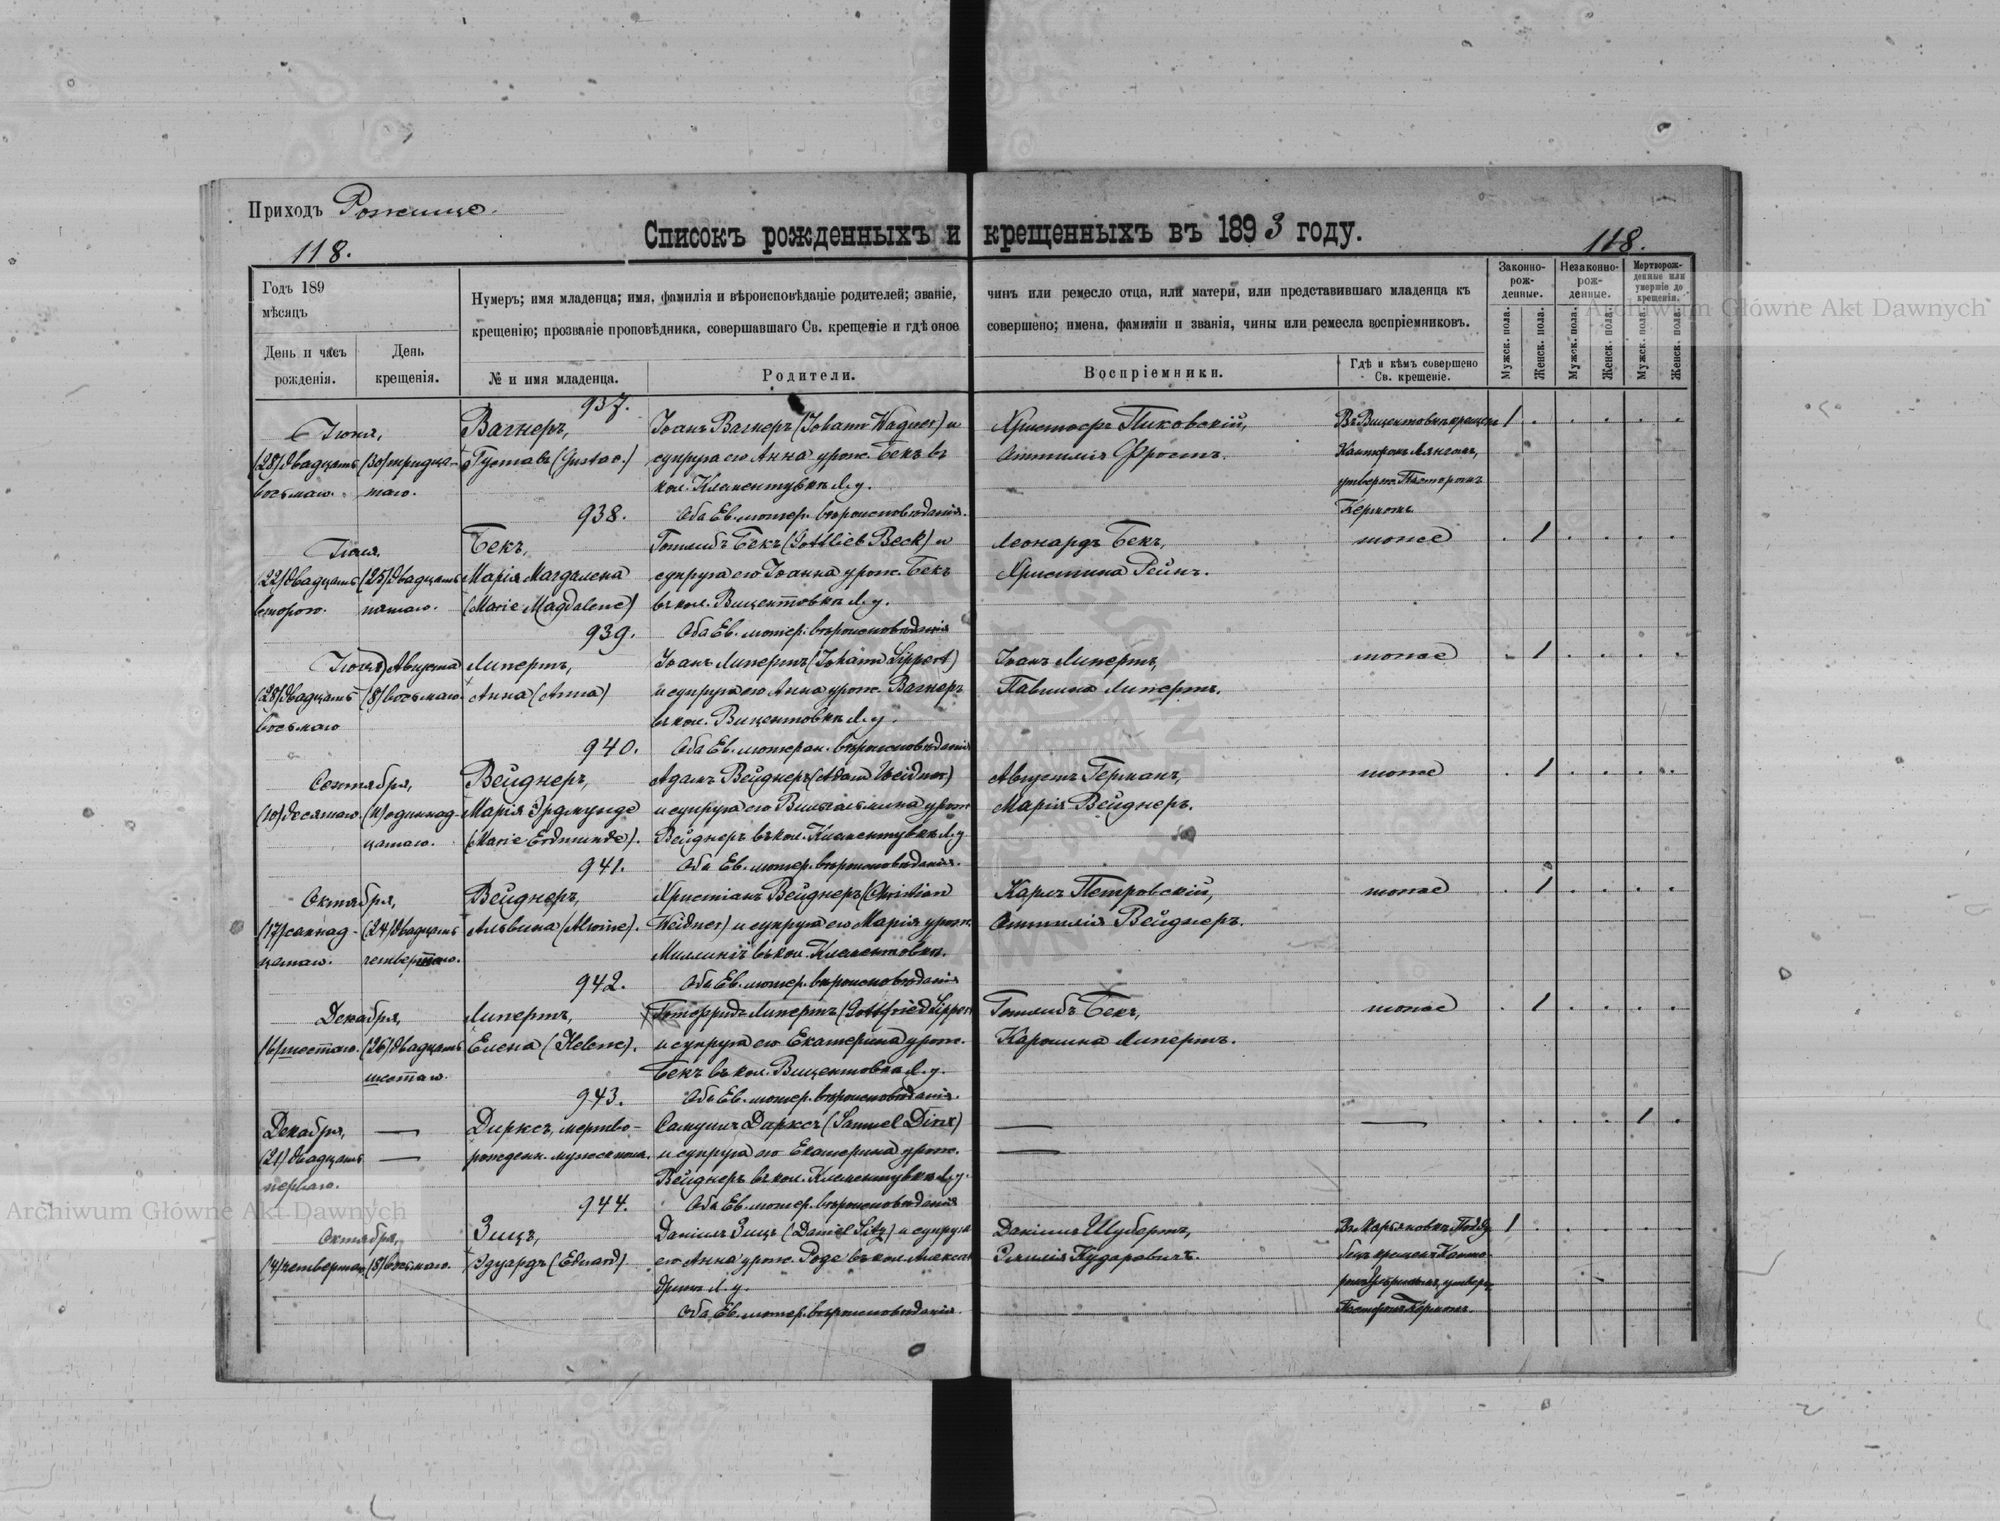 Приходъ Рожище.
118.
Списокъ рожденныхъ и крещенныхъ въ 1893 году.
118.
Годъ 189
мѣсяцъ
День и часъ рожденія.
День крещенія.
Нумеръ; имя младенца; имя, фамилія и вѣроисповѣданіе родителей; званіе, чинъ или ремесло отца, или матери, или представившаго младенца къ
крещенію; прозваніе проповѣдника, совершавшаго Св. крещеніе и гдѣ оное совершено; имена, фамиліи и званія, чины или ремесла воспріемниковъ.
№ и имя младенца.
Родители.
Воспріемники.
Гдѣ и кѣмъ совершено Св. крещеніе.
Законно-рож-денные.
Незаконно-рож-денные.
Мертворож-денные или умершіе до крещенія.
Мужск. пола.
Женск. пола.
Мужск. пола.
Женск. пола.
Мужск. пола.
Женск. пола.
937.
Іюня, Вагнеръ, Іоанъ Вагнеръ (Johann Wagner) и Христофъ Пиковскій, Въ Вицентовкѣ крещен 1
(28) двадцать (30) тридца- Густавъ (Gustav.) супруга его Анна урож. Бекъ въ Оттилія Фростъ. Канторомъ
восьмаго. таго. кол. Клементувка Л. у. утверж. Пасторомъ
938. Оба Ев. лютер. вѣроисповѣданія. Кермомъ
Іюля, Бекъ, Готлибъ Бекъ (Gottlieb Beck) и Леонардъ Бекъ, тоже 1
(22) двадцать (25) двадцать Марія Магдалена супруга его Іоанна урож. Бекъ Христина Рейнъ.
втораго. пятаго. (Marie Magdalene) въ кол. Вицентовка Л. у.
939. Оба Ев. лютер. вѣроисповѣданія
Іюля, Августа Липертъ, Іоанъ Липертъ (Johann Lippert) Іоанъ Липертъ, тоже 1
(28) двадцать (8) восьмаго Анна (Anna) и супруга его Анна урож. Вагнеръ Павлина Липертъ.
восьмаго въ кол. Вицентовка Л. у.
940. Оба Ев. лютеран. вѣроисповѣданія
Сентября, Вейднеръ, Адамъ Вейднеръ (Adam Weidner) Августъ Германъ, тоже 1
(10) десятаго. (11) одиннад- Марія Эрдмунде и супруга его Вильгельмина урож Марія Вейднеръ.
цатаго. (Marie Erdmunde). Вейднеръ въ кол. Клементувка Л. у.
941. Оба Ев. лютер. вѣроисповѣданія.
Октября, Вейднеръ, Христіанъ Вейднеръ (Christian Карлъ Петровскій, тоже 1
(17) семнад- (24) двадцать Альвина (Alwine). Weidner) и супруга его Марія урож. Оттилія Вейднеръ.
цатаго. четвертаго. въ кол. Клементовка.
942. Оба Ев. лютер. вѣроисповѣданія
Декабря, Липертъ, Готфридъ Липертъ (Gottfried Lippert Готлибъ Бекъ, тоже 1
(6) шестаго. (26) двадцать Елена (Helene). и супруга его Екатерина урож. Каролина Липертъ.
шестаго. Бекъ въ кол. Вицентовка Л. у.
943. Оба Ев. лютер. вѣроисповѣданія.
Декабря, — Дирксъ, мертво- Самуилъ Дарксъ (Samuel Dirx) — — 1
(21) двадцать — рожденн. мужск. пола. и супруга его Екатерина урож. —
перваго. Вейднеръ въ кол. Клементувка Л. у.
944. Оба Ев. лютер. вѣроисповѣданія
Октября, Зицъ, Даніилъ Зицъ (Daniel Sitz) и супруга Даніилъ Шубертъ, Въ Марьяновкѣ 1
(4) четвертаго (8) восьмаго. Эдуардъ (Eduard) его Анна урож. Роде въ кол. Алексан Эмилія Кударовичъ. крещен Канто-
дрія Л. у. утверж.
Оба Ев. лютер. вѣроисповѣданія. Пасторомъ Кермомъ.
Archiwum Główne Akt Dawnych
Archiwum Główne Akt Dawnych